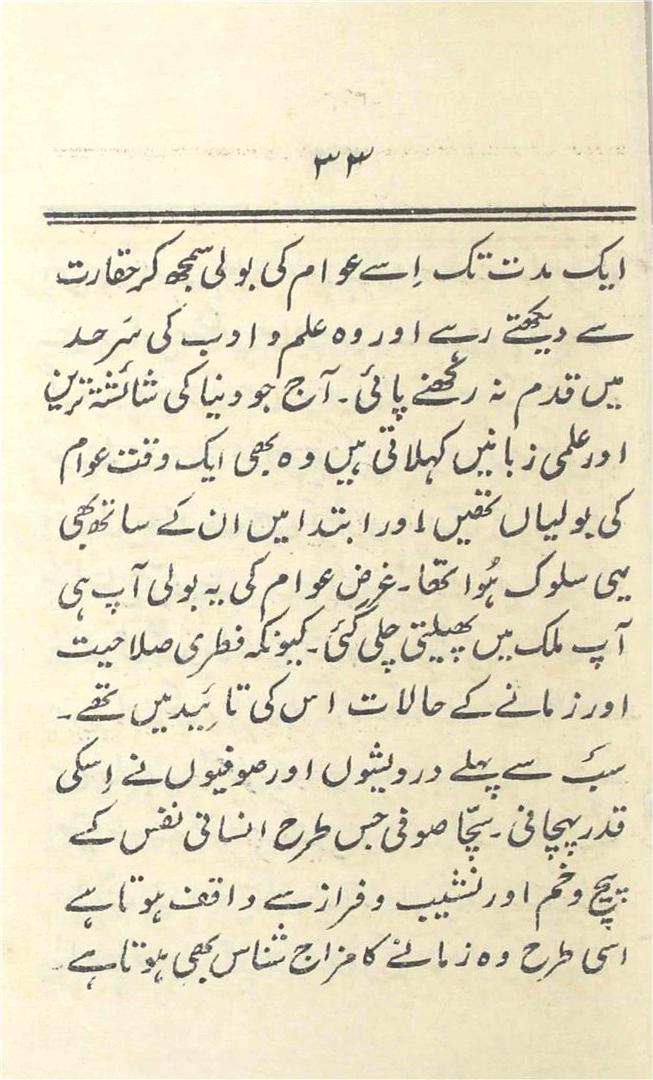 ۳۳
ایک مدت تک اِسے عوام کی بولی سمجھ کر حقارت
سے دیکھتے رہے اور وہ علم و ادب کی سَرحد
میں قدم نہ رکھنے پائی۔ آج جو دنیا کی شائستہ ترین
اور علمی زبانیں کہلاتی ہیں وہ بھی ایک وقت عوام
کی بولیاں تھیں اور ابتدا میں ان کے ساتھ بھی
یہی سلوک ہُوا تھا۔ غرض عوام کی یہ بولی آپ ہی
آپ ملک میں پھیلتی چلی گئی۔ کیونکہ فطری صلاحیت
اور زمانے کے حالات اس کی تائید میں تھے۔
سب سے پہلے درویشوں اور صوفیوں نے اِسکی
قدر پہچانی۔ سچّا صوفی جس طرح انسانی نفس کے
پیچ و خم اور نشیب و فراز سے واقف ہوتا ہے
اسی طرح وہ زمانے کا مزاج شناس بھی ہوتا ہے۔